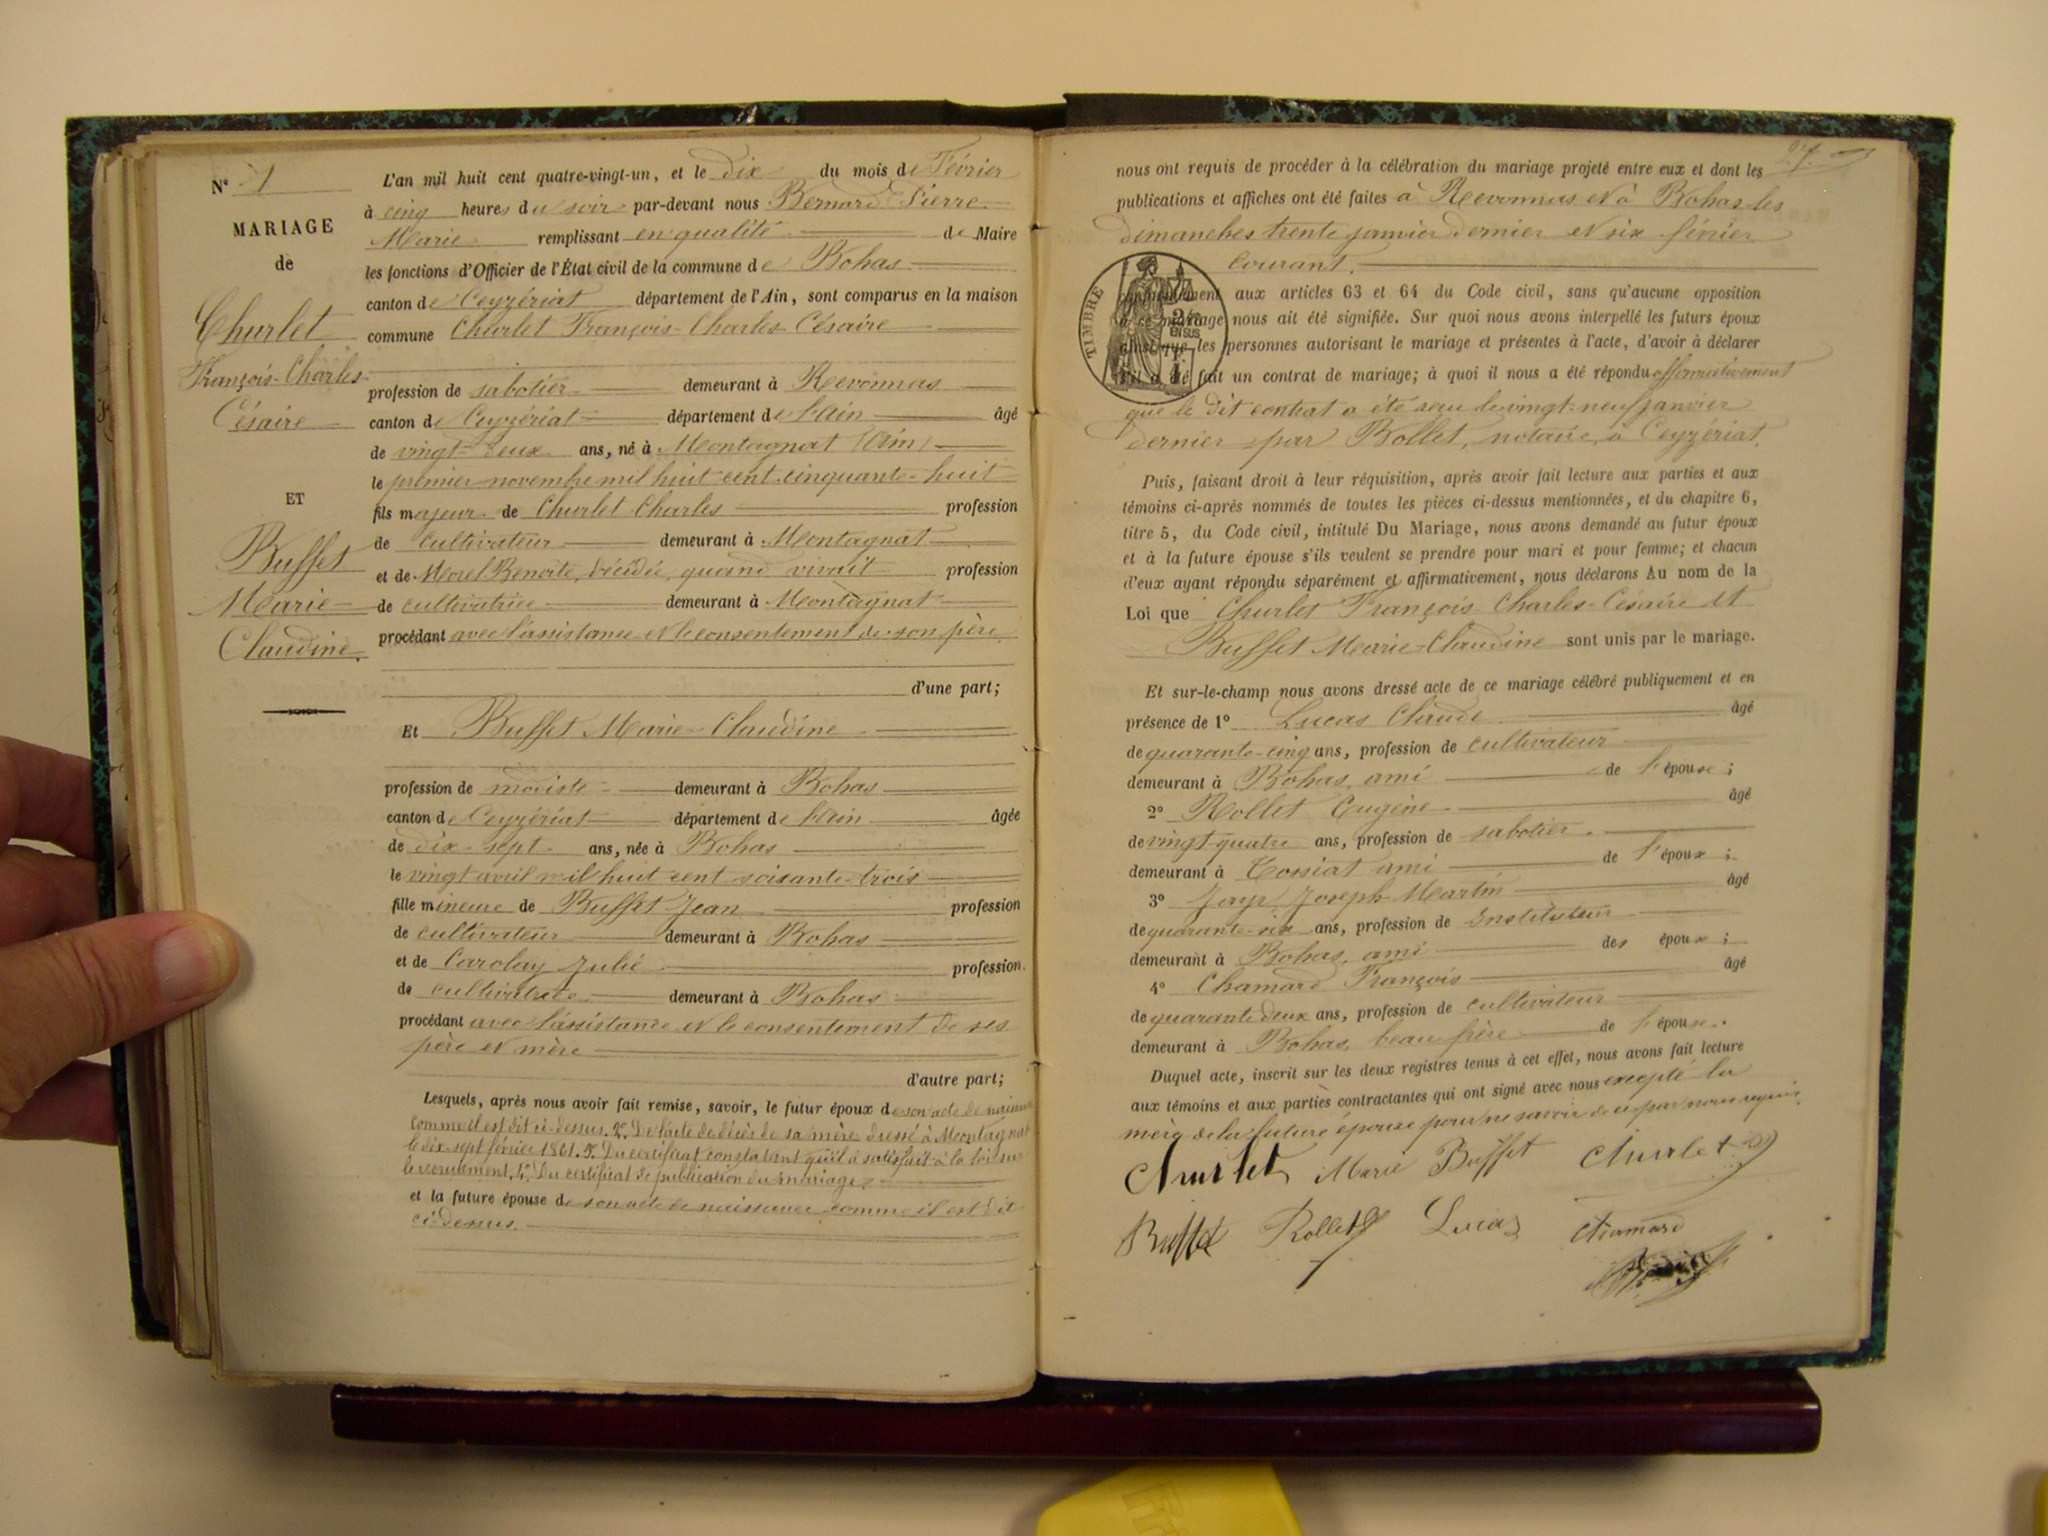 N° 1
MARIAGE
de
Churlet
François-Charles
Césaire
ET
Buffet
Marie
Claudine.
L'an mil huit cent quatre-vingt-un, et le dix du mois de Février
à cinq heures du soir par-devant nous Bernard Pierre
Marie remplissant en qualité de Maire
les fonctions d'Officier de l'État civil de la commune de Bohas
canton de Ceyzériat département de l'Ain, sont comparus en la maison
commune Churlet François-Charles-Césaire
profession de sabotier demeurant à Revonnas
canton de Ceyzériat département de l'Ain âgé
de vingt-deux ans, né à Montagnat (Ain)
le premier novembre mil huit cent cinquante-huit
fils majeur de Churlet Charles profession
de cultivateur demeurant à Montagnat
et de Morel Benoite, décédée, quand vivait profession
de cultivatrice demeurant à Montagnat
procédant avec l'assistance et le consentement de son père
d'une part;
Et Buffet Marie-Claudine
profession de modiste demeurant à Bohas
canton de Ceyzériat département de l'Ain âgée
de dix-sept ans, née à Bohas
le vingt avril mil huit cent soixante-trois
fille mineure de Buffet Jean profession
de cultivateur demeurant à Bohas
et de Carolay Julie profession
de cultivatrice demeurant à Bohas
procédant avec l'assistance et le consentement de ses
père et mère
d'autre part;
Lesquels, après nous avoir fait remise, savoir, le futur époux de son acte de naissance
comme il est dit ci-dessus. 2° De l'acte de décès de sa mère dressé à Montagnat
le dix-sept février 1861. 3° Du certificat constatant qu'il a satisfait à la loi sur
le recrutement. 4° Du certificat de publication du mariage.
et la future épouse de son acte de naissance comme il est dit
ci-dessus.
nous ont requis de procéder à la célébration du mariage projeté entre eux et dont les
publications et affiches ont été faites à Revonnas et à Bohas les
dimanches trente janvier dernier et six février
courant.
TIMBRE
2/10
EN SUS
aux articles 63 et 64 du Code civil, sans qu'aucune opposition
à ce mariage nous ait été signifiée. Sur quoi nous avons interpellé les futurs époux
ainsi que les personnes autorisant le mariage et présentes à l'acte, d'avoir à déclarer
s'il a été fait un contrat de mariage; à quoi il nous a été répondu affirmativement
que le dit contrat a été reçu le vingt-neuf janvier
dernier par Rollet, notaire, à Ceyzériat.
Puis, faisant droit à leur réquisition, après avoir fait lecture aux parties et aux
témoins ci-après nommés de toutes les pièces ci-dessus mentionnées, et du chapitre 6,
titre 5, du Code civil, intitulé Du Mariage, nous avons demandé au futur époux
et à la future épouse s'ils veulent se prendre pour mari et pour femme; et chacun
d'eux ayant répondu séparément et affirmativement, nous déclarons Au nom de la
Loi que Churlet François-Charles-Césaire et
Buffet Marie-Claudine sont unis par le mariage.
Et sur-le-champ nous avons dressé acte de ce mariage célébré publiquement et en
présence de 1° Lucas Claude âgé
de quarante-cinq ans, profession de cultivateur
demeurant à Bohas, ami de l'épouse;
2° Rollet Eugène âgé
de vingt-quatre ans, profession de sabotier
demeurant à Tossiat ami de l'époux;
3° Jayr Joseph Martin âgé
de quarante-six ans, profession de Instituteur
demeurant à Bohas, ami des époux;
4° Chamard François âgé
de quarante deux ans, profession de cultivateur
demeurant à Bohas, beau frère de l'épouse.
Duquel acte, inscrit sur les deux registres tenus à cet effet, nous avons fait lecture
aux témoins et aux parties contractantes qui ont signé avec nous excepté la
mère de la future épouse pour ne savoir de ce par nous requis.
Churlet Marie Buffet Churlet
Buffet Rollet Lucas Chamard